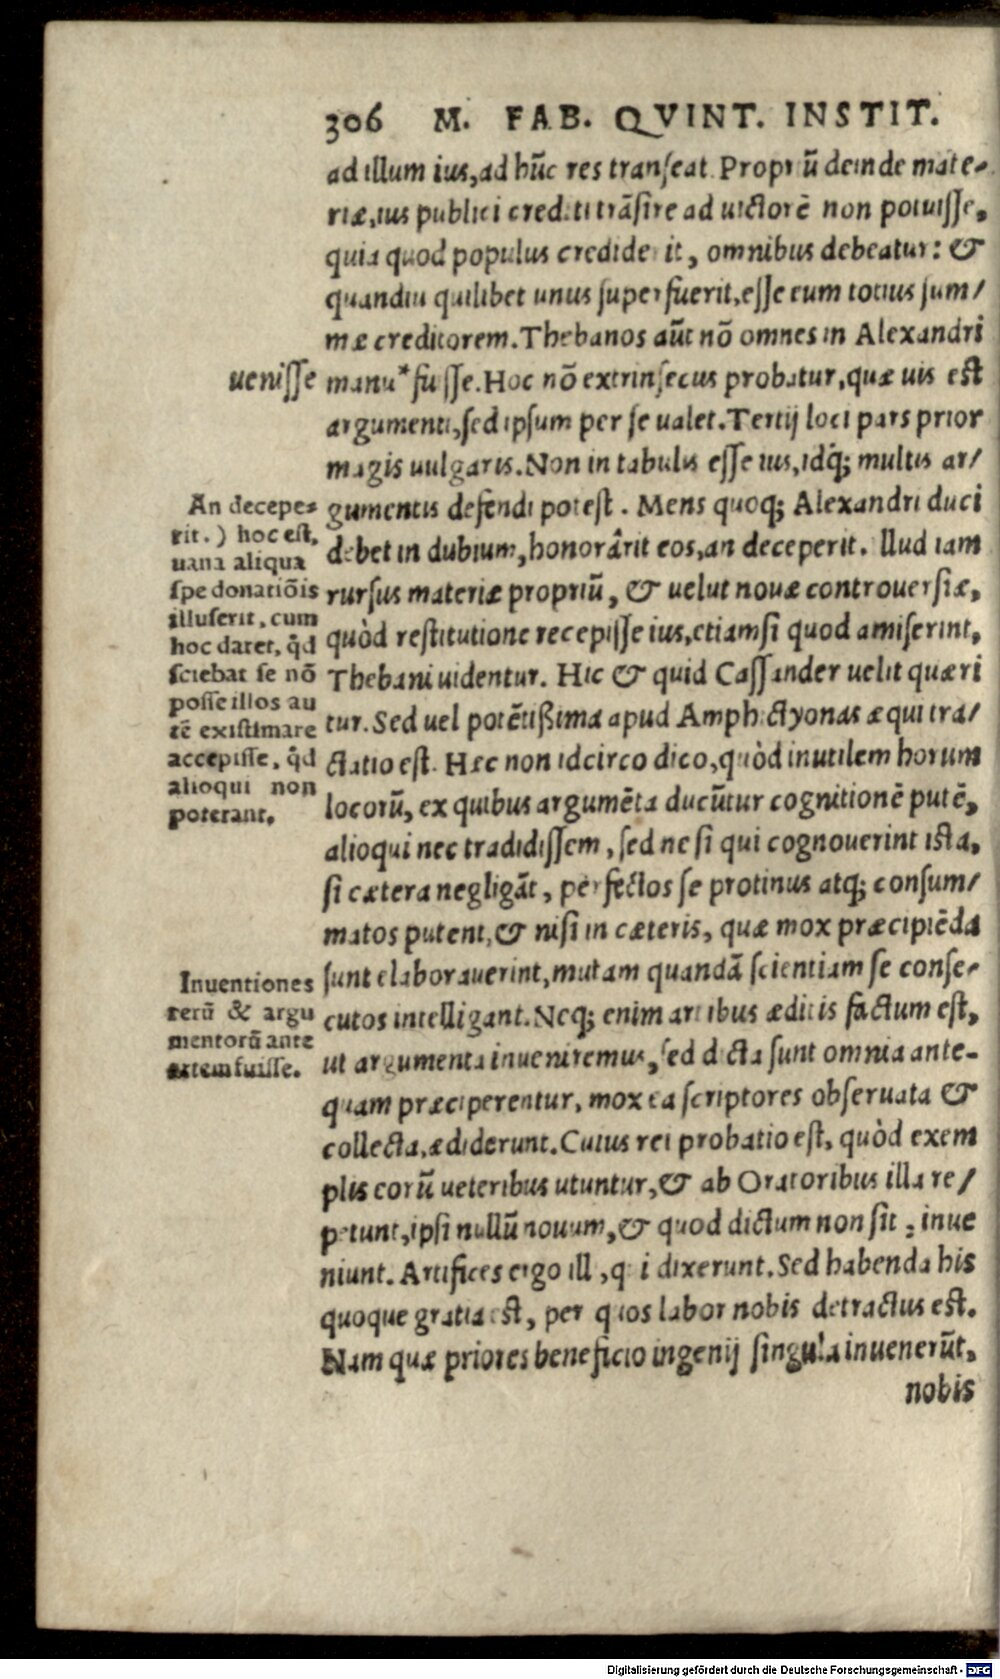 306 M. FAB. QVINT. INSTIT.
ad illum ius, ad hũc res transeat. Propriũ deinde mate-
riæ, ius publici crediti trãsire ad uictorẽ non potuisse,
quia quod populus crediderit, omnibus debeatur: &
quandiu quilibet unus superfuerit, esse eum totius sum/
mæ creditorem. Thebanos aũt nõ omnes in Alexandri
uenisse
manu* fuisse. Hoc nõ extrinsecus probatur, quæ uis est
argumenti, sed ipsum per se ualet. Tertij loci pars prior
magis uulgaris. Non in tabulis esse ius, idq́; multis ar/
gumentis defendi potest. Mens quoq; Alexandri duci
debet in dubium, honorârit eos, an deceperit. Illud iam
rursus materiæ propriũ, & uelut nouæ controuersiæ,
quòd restitutione recepisse ius, etiamsi quod amiserint,
Thebani uidentur. Hic & quid Cassander uelit quæri
tur. Sed uel potẽtißima apud Amphictyonas æqui tra/
ctatio est. Hæc non idcirco dico, quòd inutilem horum
locorũ, ex quibus argumẽta ducũtur cognitionẽ putẽ,
alioqui nec tradidissem, sed ne si qui cognouerint ista,
si cætera negligãt, perfectos se protinus atq; consum/
matos putent, & nisi in cæteris, quæ mox præcipiẽda
sunt elaborauerint, mutam quandã scientiam se conse-
cutos intelligant. Neq; enim artibus æditis factum est,
ut argumenta inueniremus, sed dicta sunt omnia ante-
quam præciperentur, mox ea scriptores obseruata &
collecta, ædiderunt. Cuius rei probatio est, quòd exem
plis eorũ ueteribus utuntur, & ab Oratoribus illa re/
petunt, ipsi nullũ nouum, & quod dictum non sit, inue
niunt. Artifices ergo illi, qui dixerunt. Sed habenda his
quoque gratia est, per quos labor nobis detractus est.
Nam quæ priores beneficio ingenij singula inuenerũt,
nobis
An decepe-
rit.) hoc est,
uana aliqua
spe donatiõis
illuserit, cum
hoc daret, q̃d
sciebat se nõ
posse illos au
tẽ existimare
accepisse, q̃d
alioqui non
poterant.
Inuentiones
rerũ & argu
mentorũ ante
artem fuisse.
Digitalisierung gefördert durch die Deutsche Forschungsgemeinschaft - DFG